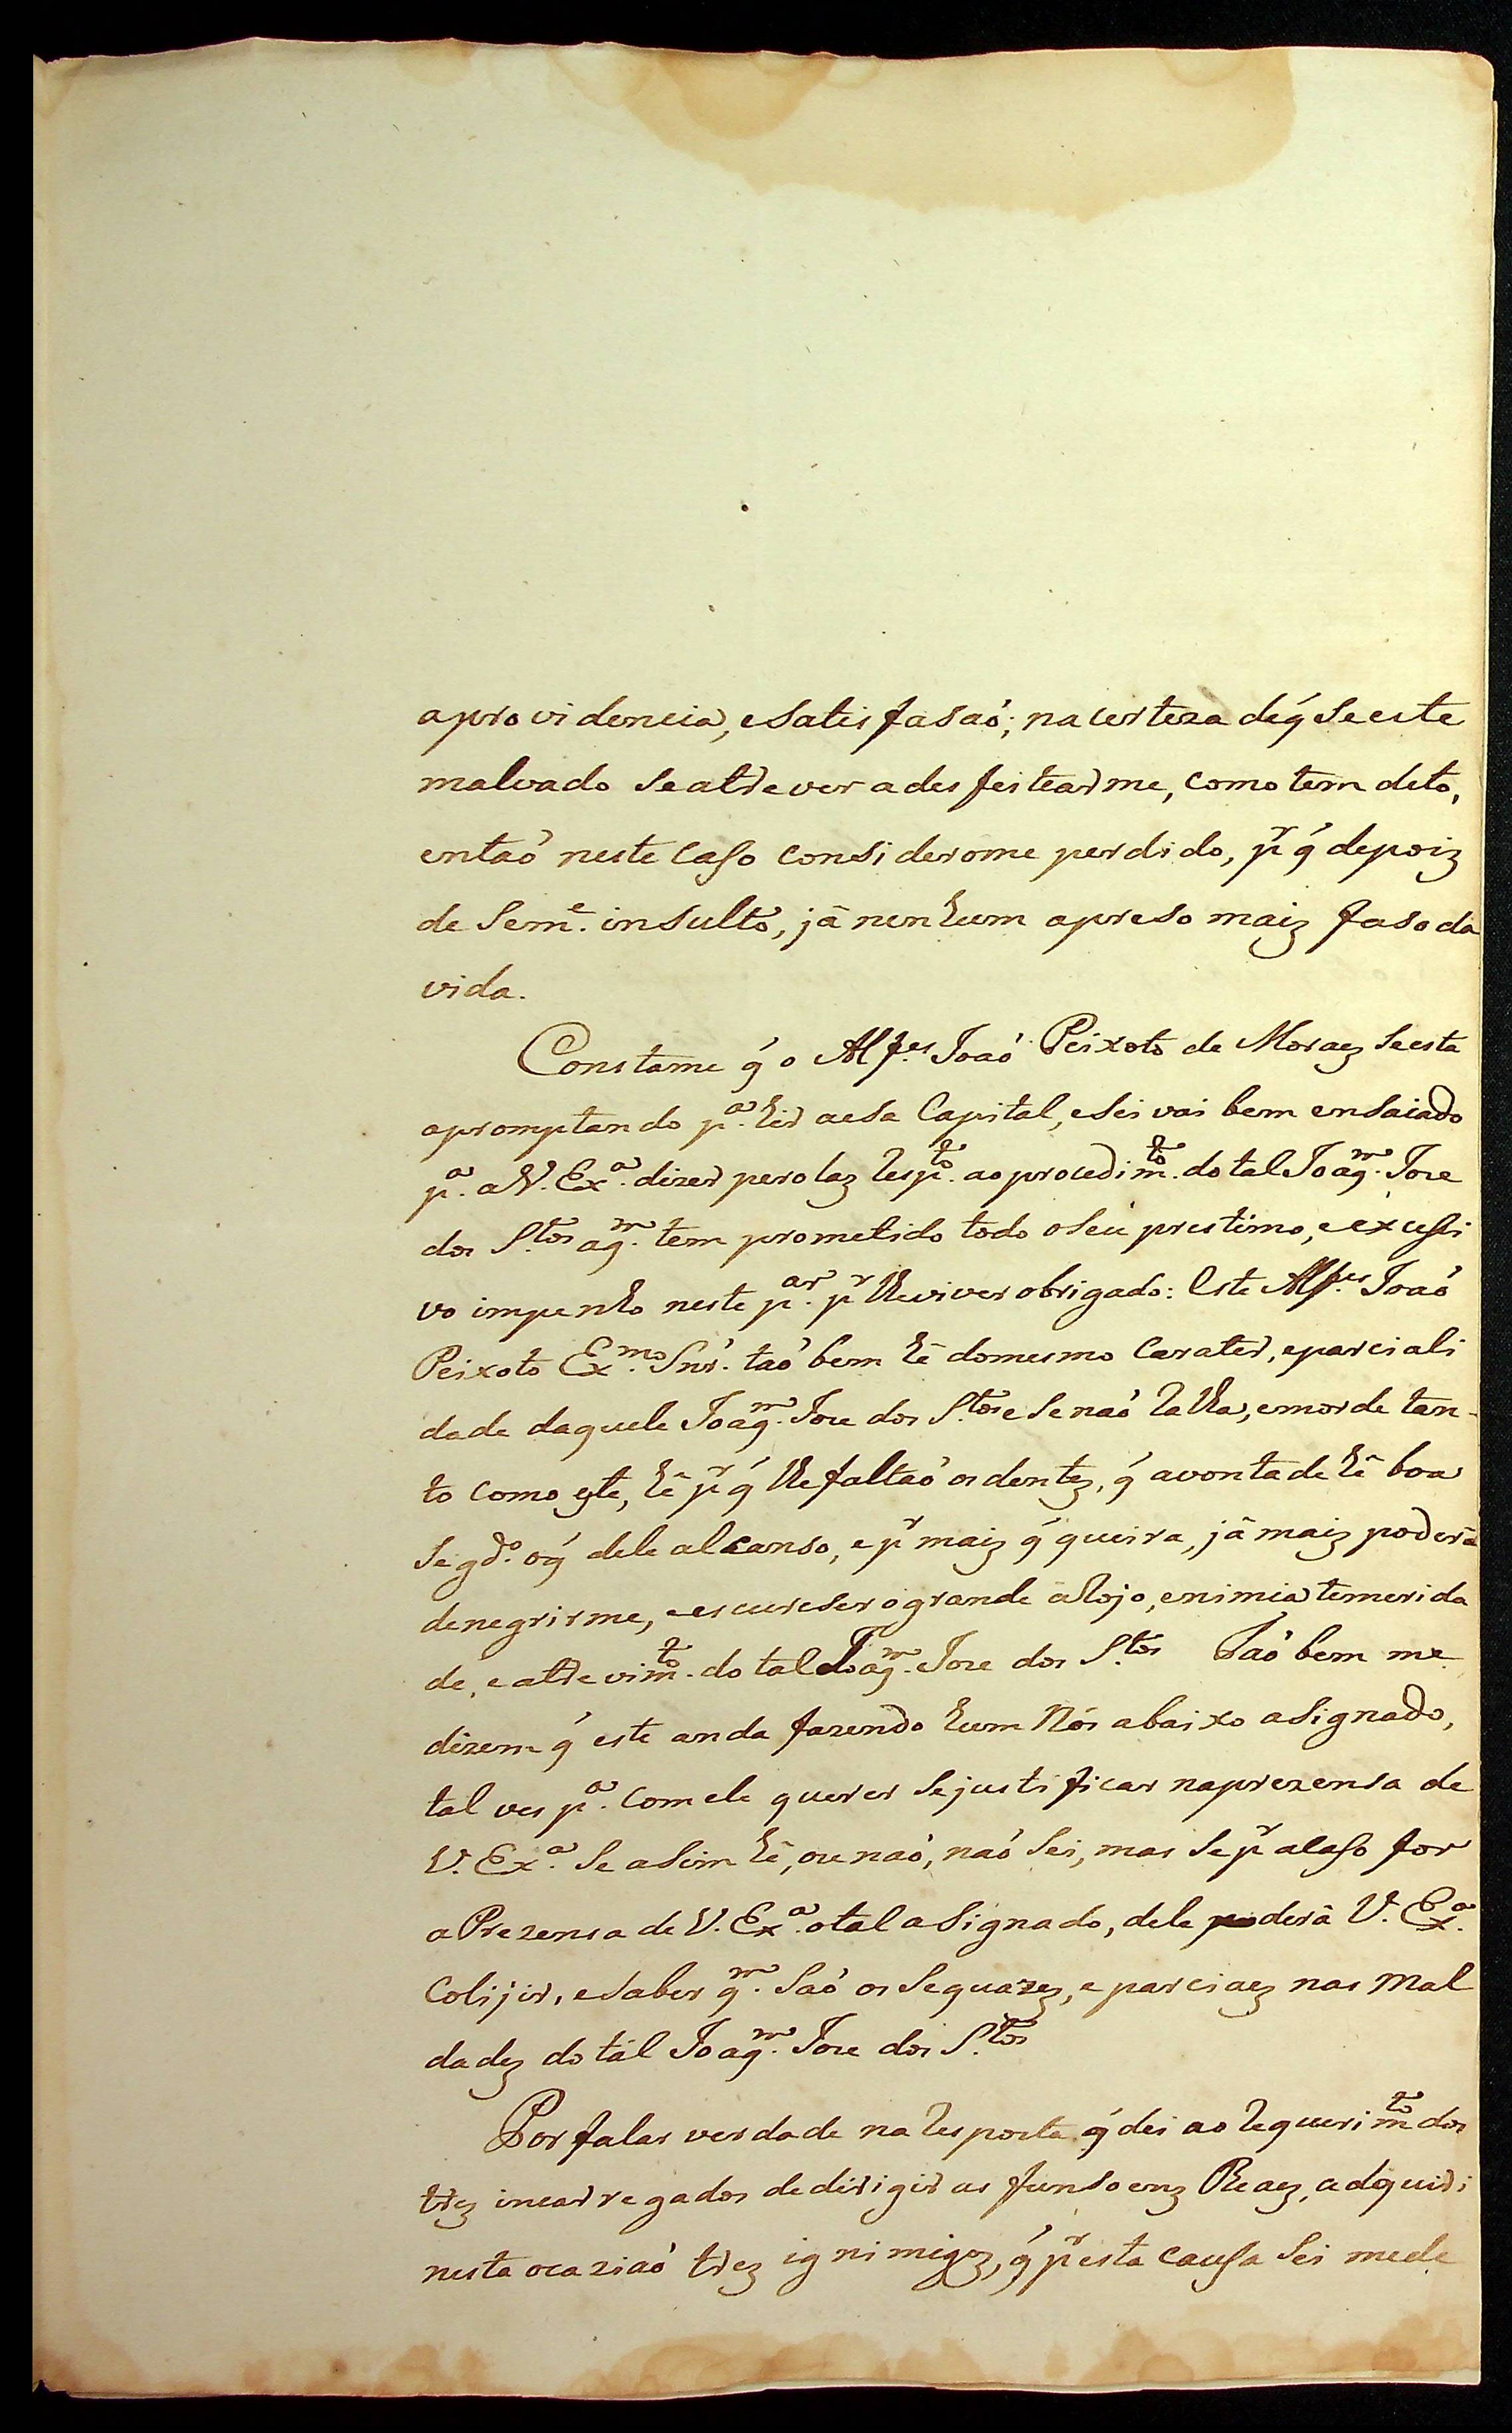 aprovidencia, esatisfasaõ; nacerteza deq́ seeste
malvado seatrever adesfeitearme, como tem dito,
entaõ neste caso considerome perdido, p.r q́ depoiz
de sem.e insulto, já nenhum apreso maiz faso da
vida.
Constame q́ o Alf.es Joaõ Peixoto de Moraez seesta
apromptando p.a hir aesa Capital, esei vai bem ensaiado
p.a aV. Ex.a dizer perolaz resp.to ao procedim.to do tal Joaq.m Joze
dos S.tos aq.m tem prometido todo oseu prestimo, eexcessi
vo impenho neste p.ar p.r lheviver obrigado: Este Alf.es Joaõ
Peixoto Ex.mo Snr. taõ bem hé domesmo Carater, eparciali
dade daquele Joaq.m Joze dos S.tos e senaõ ralha, emorde tan-
to como este, hé p.r q́ lhefaltaõ os dentez, q́ avontade hé boa
segd.o oq́ dele alcanso, e p.r maiz q́ queira, já maiz poderá
denegrirme, eescureser ogrande arojo, enimia temerida
de, eatrevim.to do tal Joaq.m Joze dos S.tos Taõ bem me
dizem q́ este anda fazendo hum Nós abaixo asignado,
tal ves p.a com ele querer sejustificar naprezensa de
V. Ex.a Se asim hé, ou naõ, naõ sei, mas se p.r acaso for
a Prezensa de V. Ex.a otal asignado, dele poderá V. Ex.a
Colijir, esaber q.m saõ os sequazez, e parciaez nas mal
dadez do tal Joaq.m Joze dos S.tos
Por falar verdade na resposta q́ dei ao requerim.to dos
trez incarregados dedirigir as funsoenz Reaez, adquiri
nesta ocaziaõ trez ignimigoz, q́ p.r esta causa sei mede